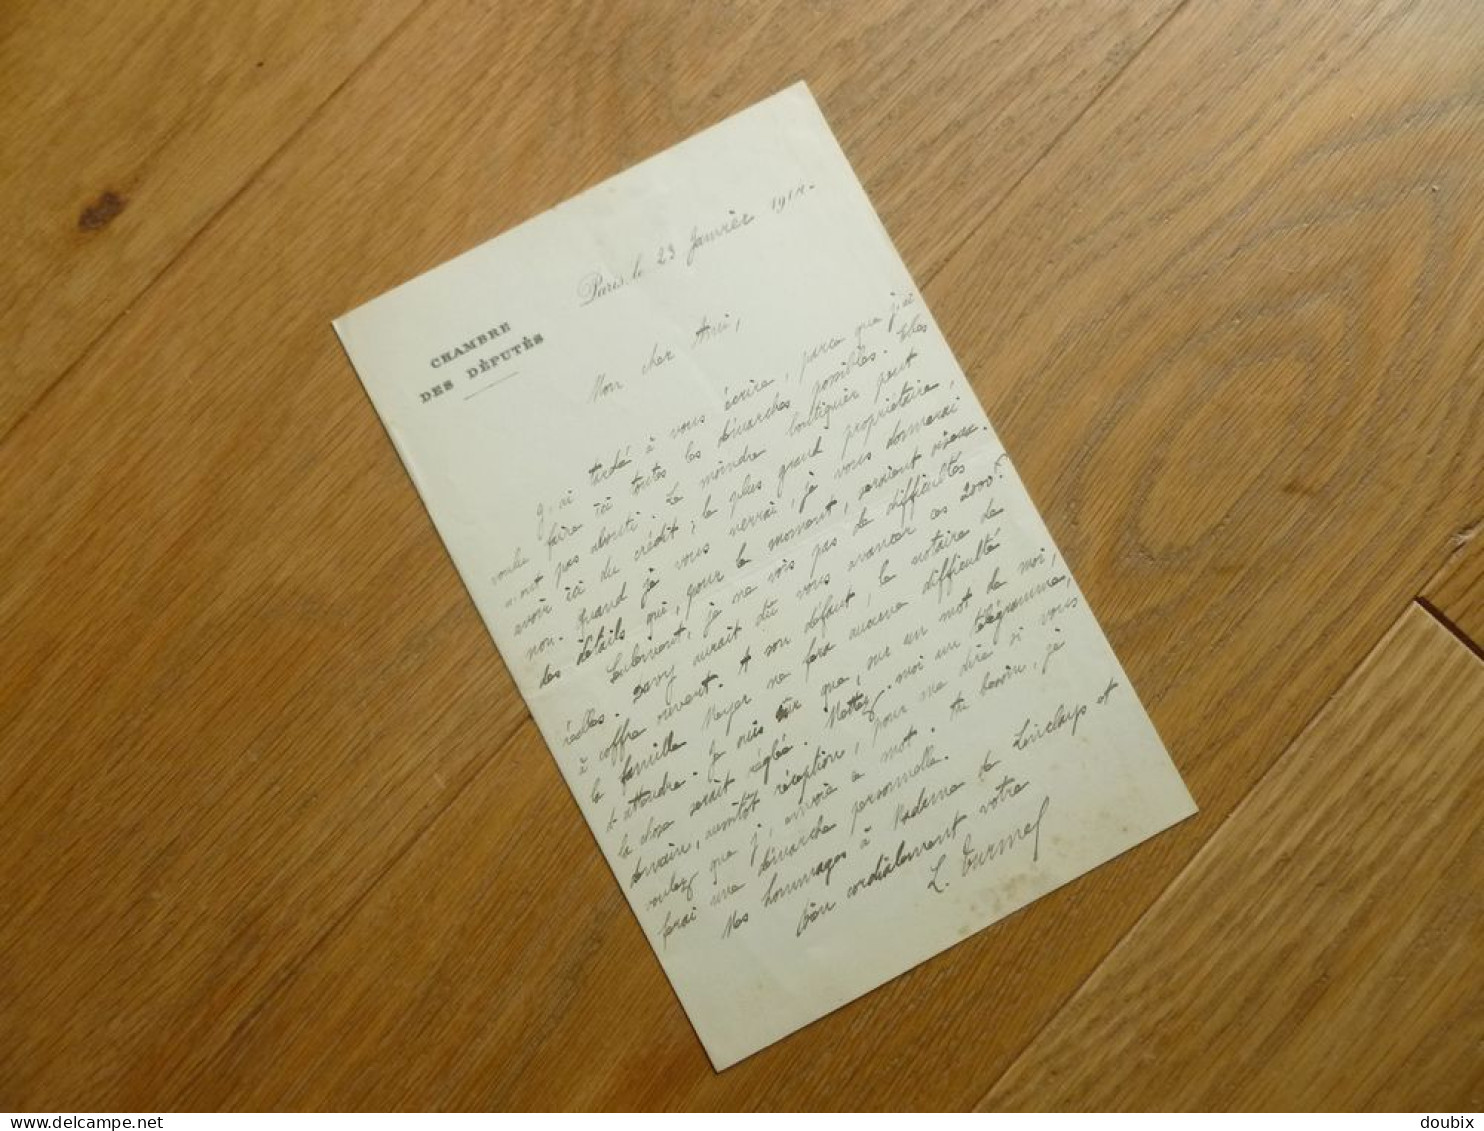 CHAMBRE
DES DÉPUTÉS
Paris, le 23 Janvier 1914.
Mon cher Ami,
J'ai tardé à vous écrire, parce que j'ai
voulu faire ici toutes les démarches possibles. Elles
n'ont pas abouti. Le moindre boutiquier peut
avoir ici du crédit; le plus grand propriétaire,
non. Quand je vous verrai, je vous donnerai
des détails qui, pour le moment, seraient oiseux.
Seulement, je ne vois pas de difficultés
réelles. Davy aurait dû vous avancer ces 2000 f
à coffre ouvert. A son défaut, le notaire de
la famille Meyer ne fera aucune difficulté
d'attendre. Je suis sûr que, sur un mot de moi,
la chose serait réglée. Mettez-moi un télégramme,
demain, aussitôt réception, pour me dire si vous
voulez que j'envoie ce mot. Au besoin, je
ferai une démarche personnelle.
Mes hommages à Madame de et
bien cordialement votre
L. Turmel
delcampe.net
doubix